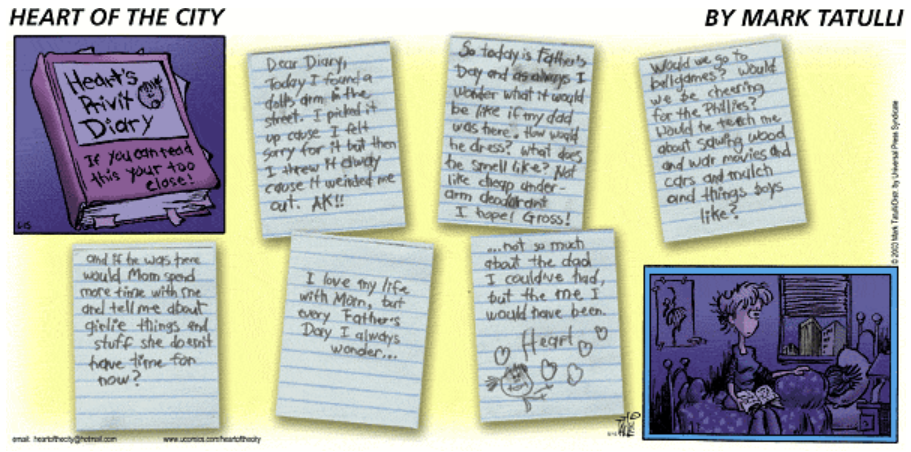 HEART OF THE CITY
BY MARK TATULLI
Heart's
Privit
Diary
If you can read
this your too
close!
Dear Diary,
Today I found a
dolls arm in the
street. I picked it
up cause I felt
sorry for it but then
I threw it away
cause it weirded me
out. AK!!
So today is Father's
Day and as always I
wonder what it would
be like if my dad
was here. How would
he dress? What does
he smell like? Not
like cheap under-
arm deodarant
I hope! Gross!
Would we go to
ballgames? Would
we be cheering
for the Phillies?
Would he teach me
about sawing wood
and war movies and
cars and mulch
and things boys
like?
and if he was here
would Mom spend
more time with me
and tell me about
girlie things and
stuff she doesn't
have time for
now?
I love my life
with Mom, but
every Father's
Day I always
wonder...
...not so much
about the dad
I could've had,
but the me I
would have been.
Heart
© 2003 Mark Tatulli/Dist. by Universal Press Syndicate
6-15
email: heartofthecity@hotmail.com
www.ucomics.com/heartofthecity
6-15